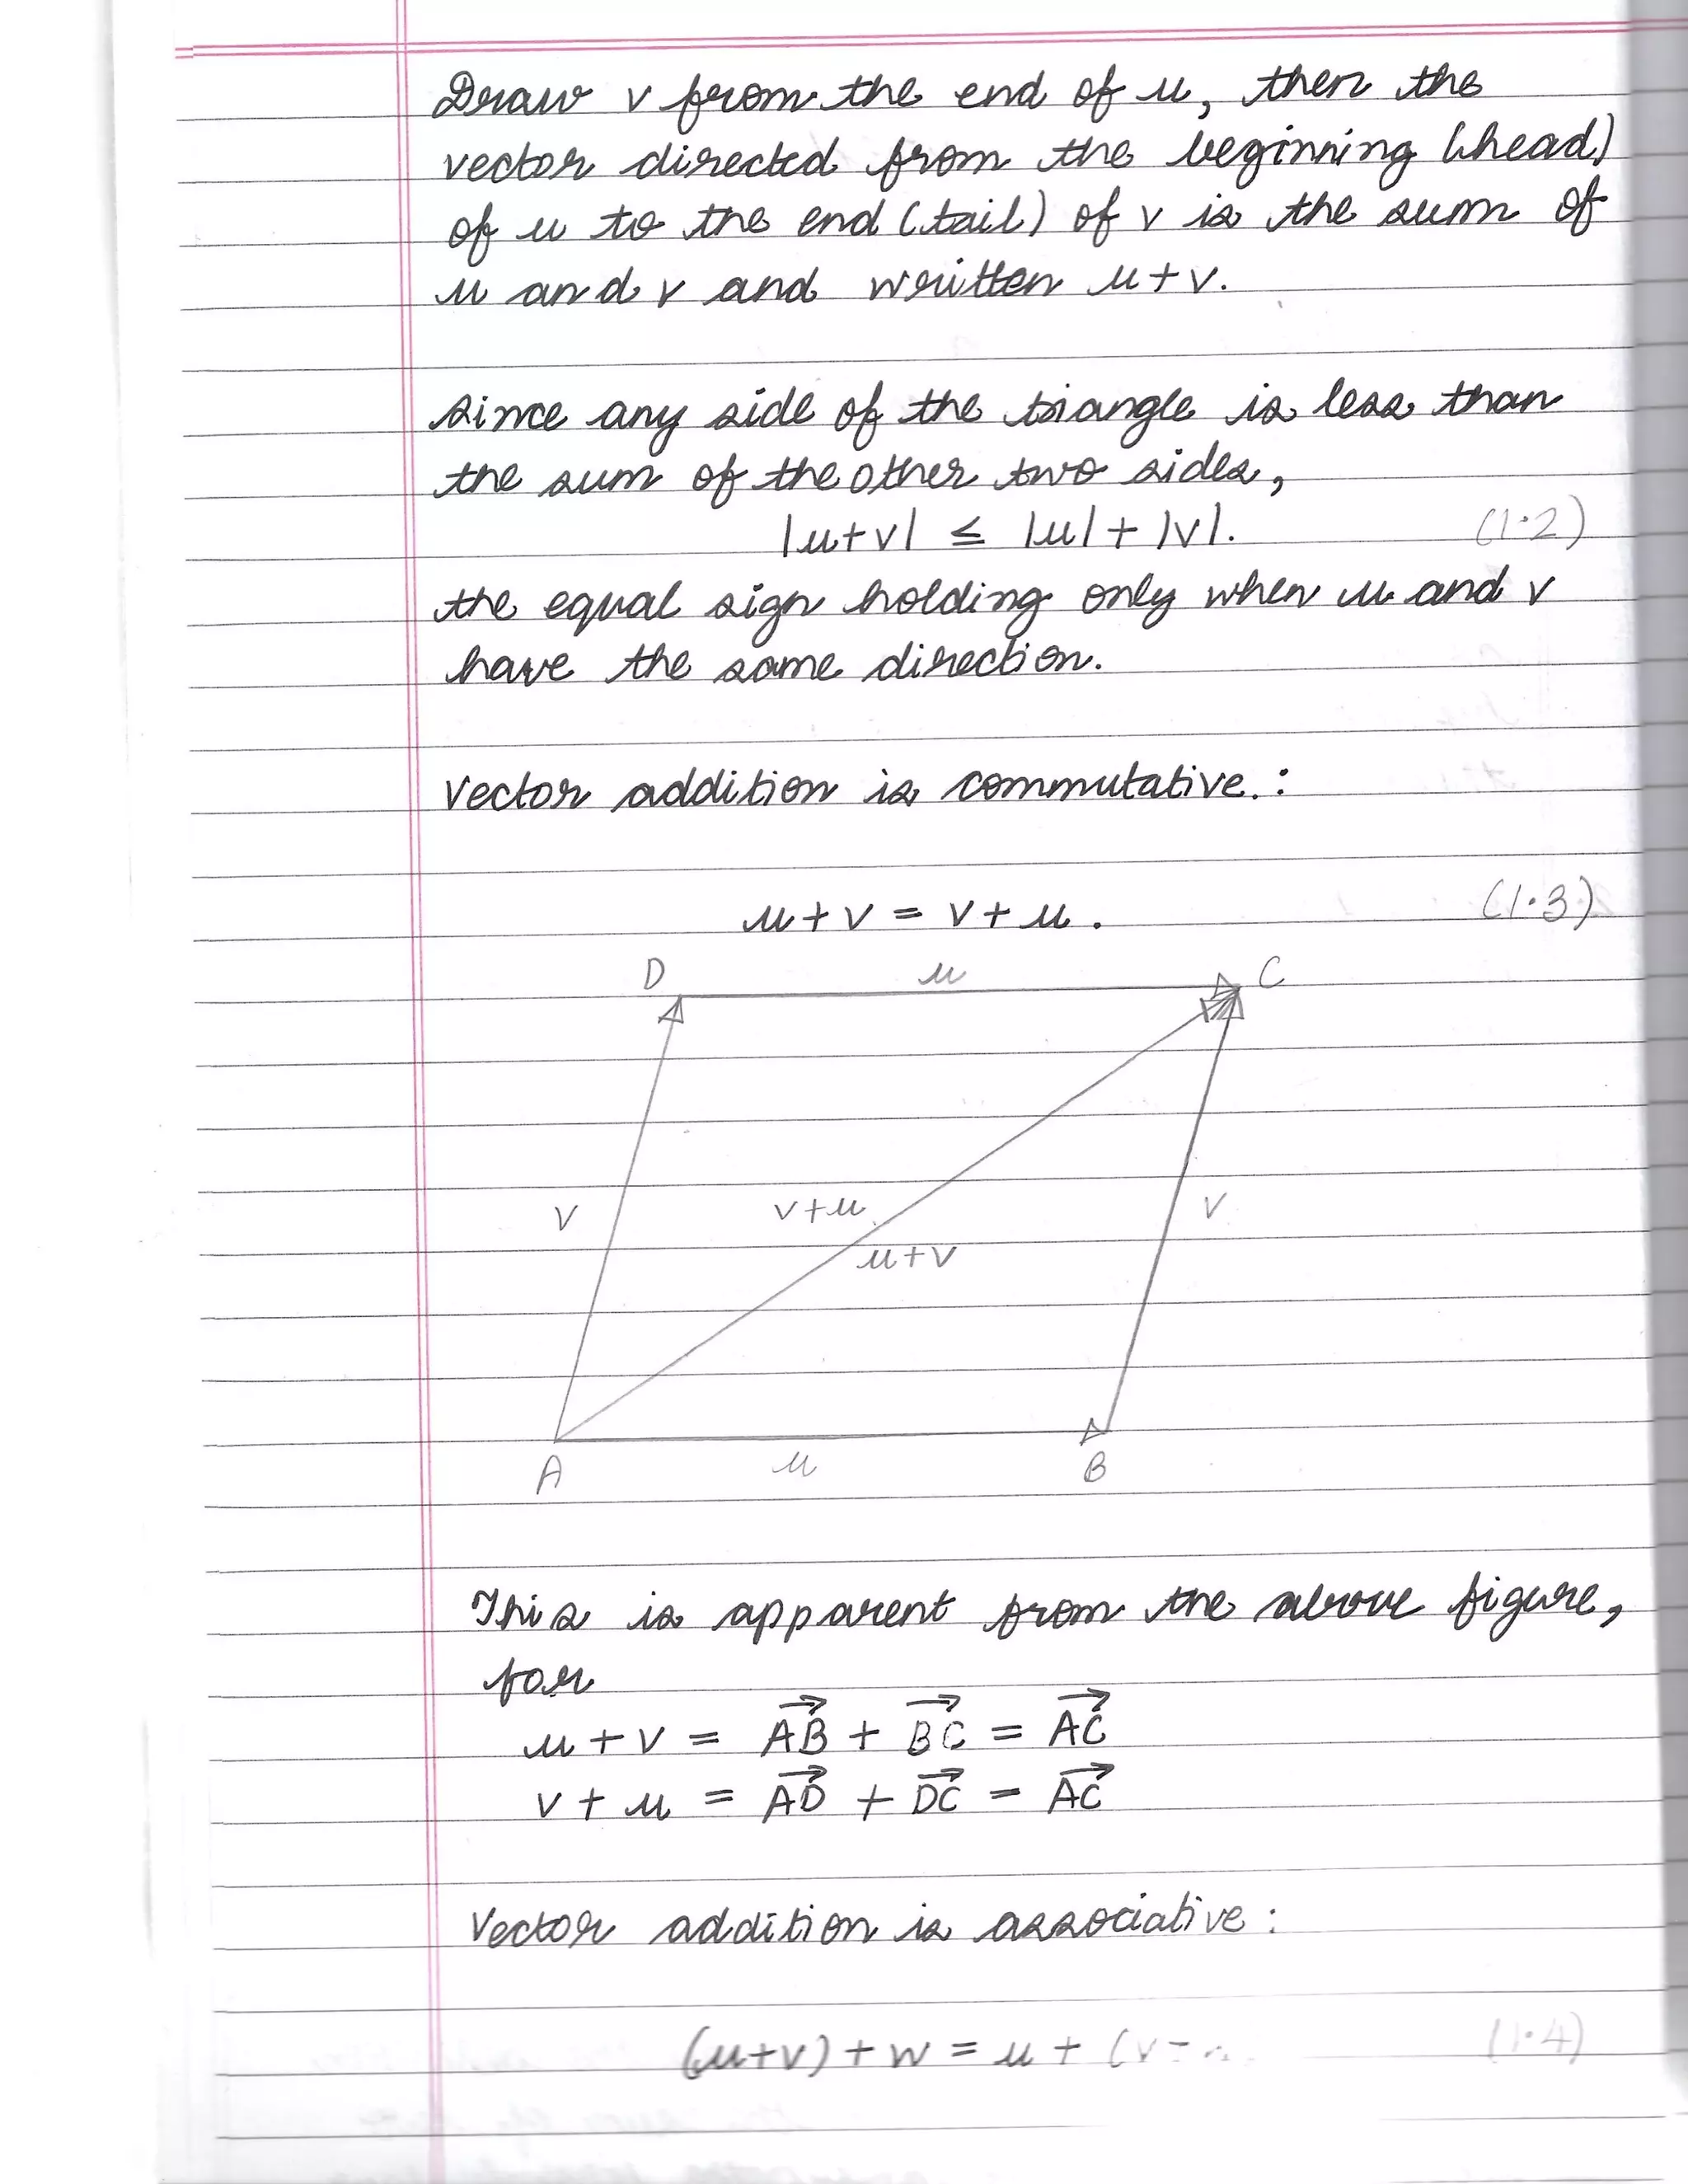 Draw v from the end of u, then the
vector directed from the beginning (head)
of u to the end (tail) of v is the sum of
u and v and written u+v.
since any side of the triangle is less than
the sum of the other two sides,
|u+v| ≤ |u| + |v|. (1.2)
the equal sign holding only when u and v
have the same direction.
Vector addition is commutative. :
u + v = v + u . (1.3)
D u C
V v+u V
u+v
A u B
This is apparent from the above figure,
for
u + v = \overrightarrow{AB} + \overrightarrow{BC} = \overrightarrow{AC}
v + u = \overrightarrow{AD} + \overrightarrow{DC} = \overrightarrow{AC}
Vector addition is associative :
(u+v) + w = u + (v (1.4)